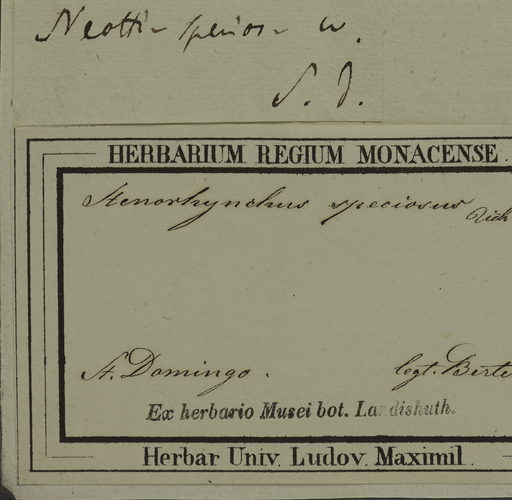 Neotti- specios- w.
S. d.
HERBARIUM REGIUM MONACENSE.
Stenorhynchus speciosus Rich
St. Domingo.
legt. Berte
Ex herbario Musei bot. Landishuth.
Herbar Univ. Ludov. Maximil.